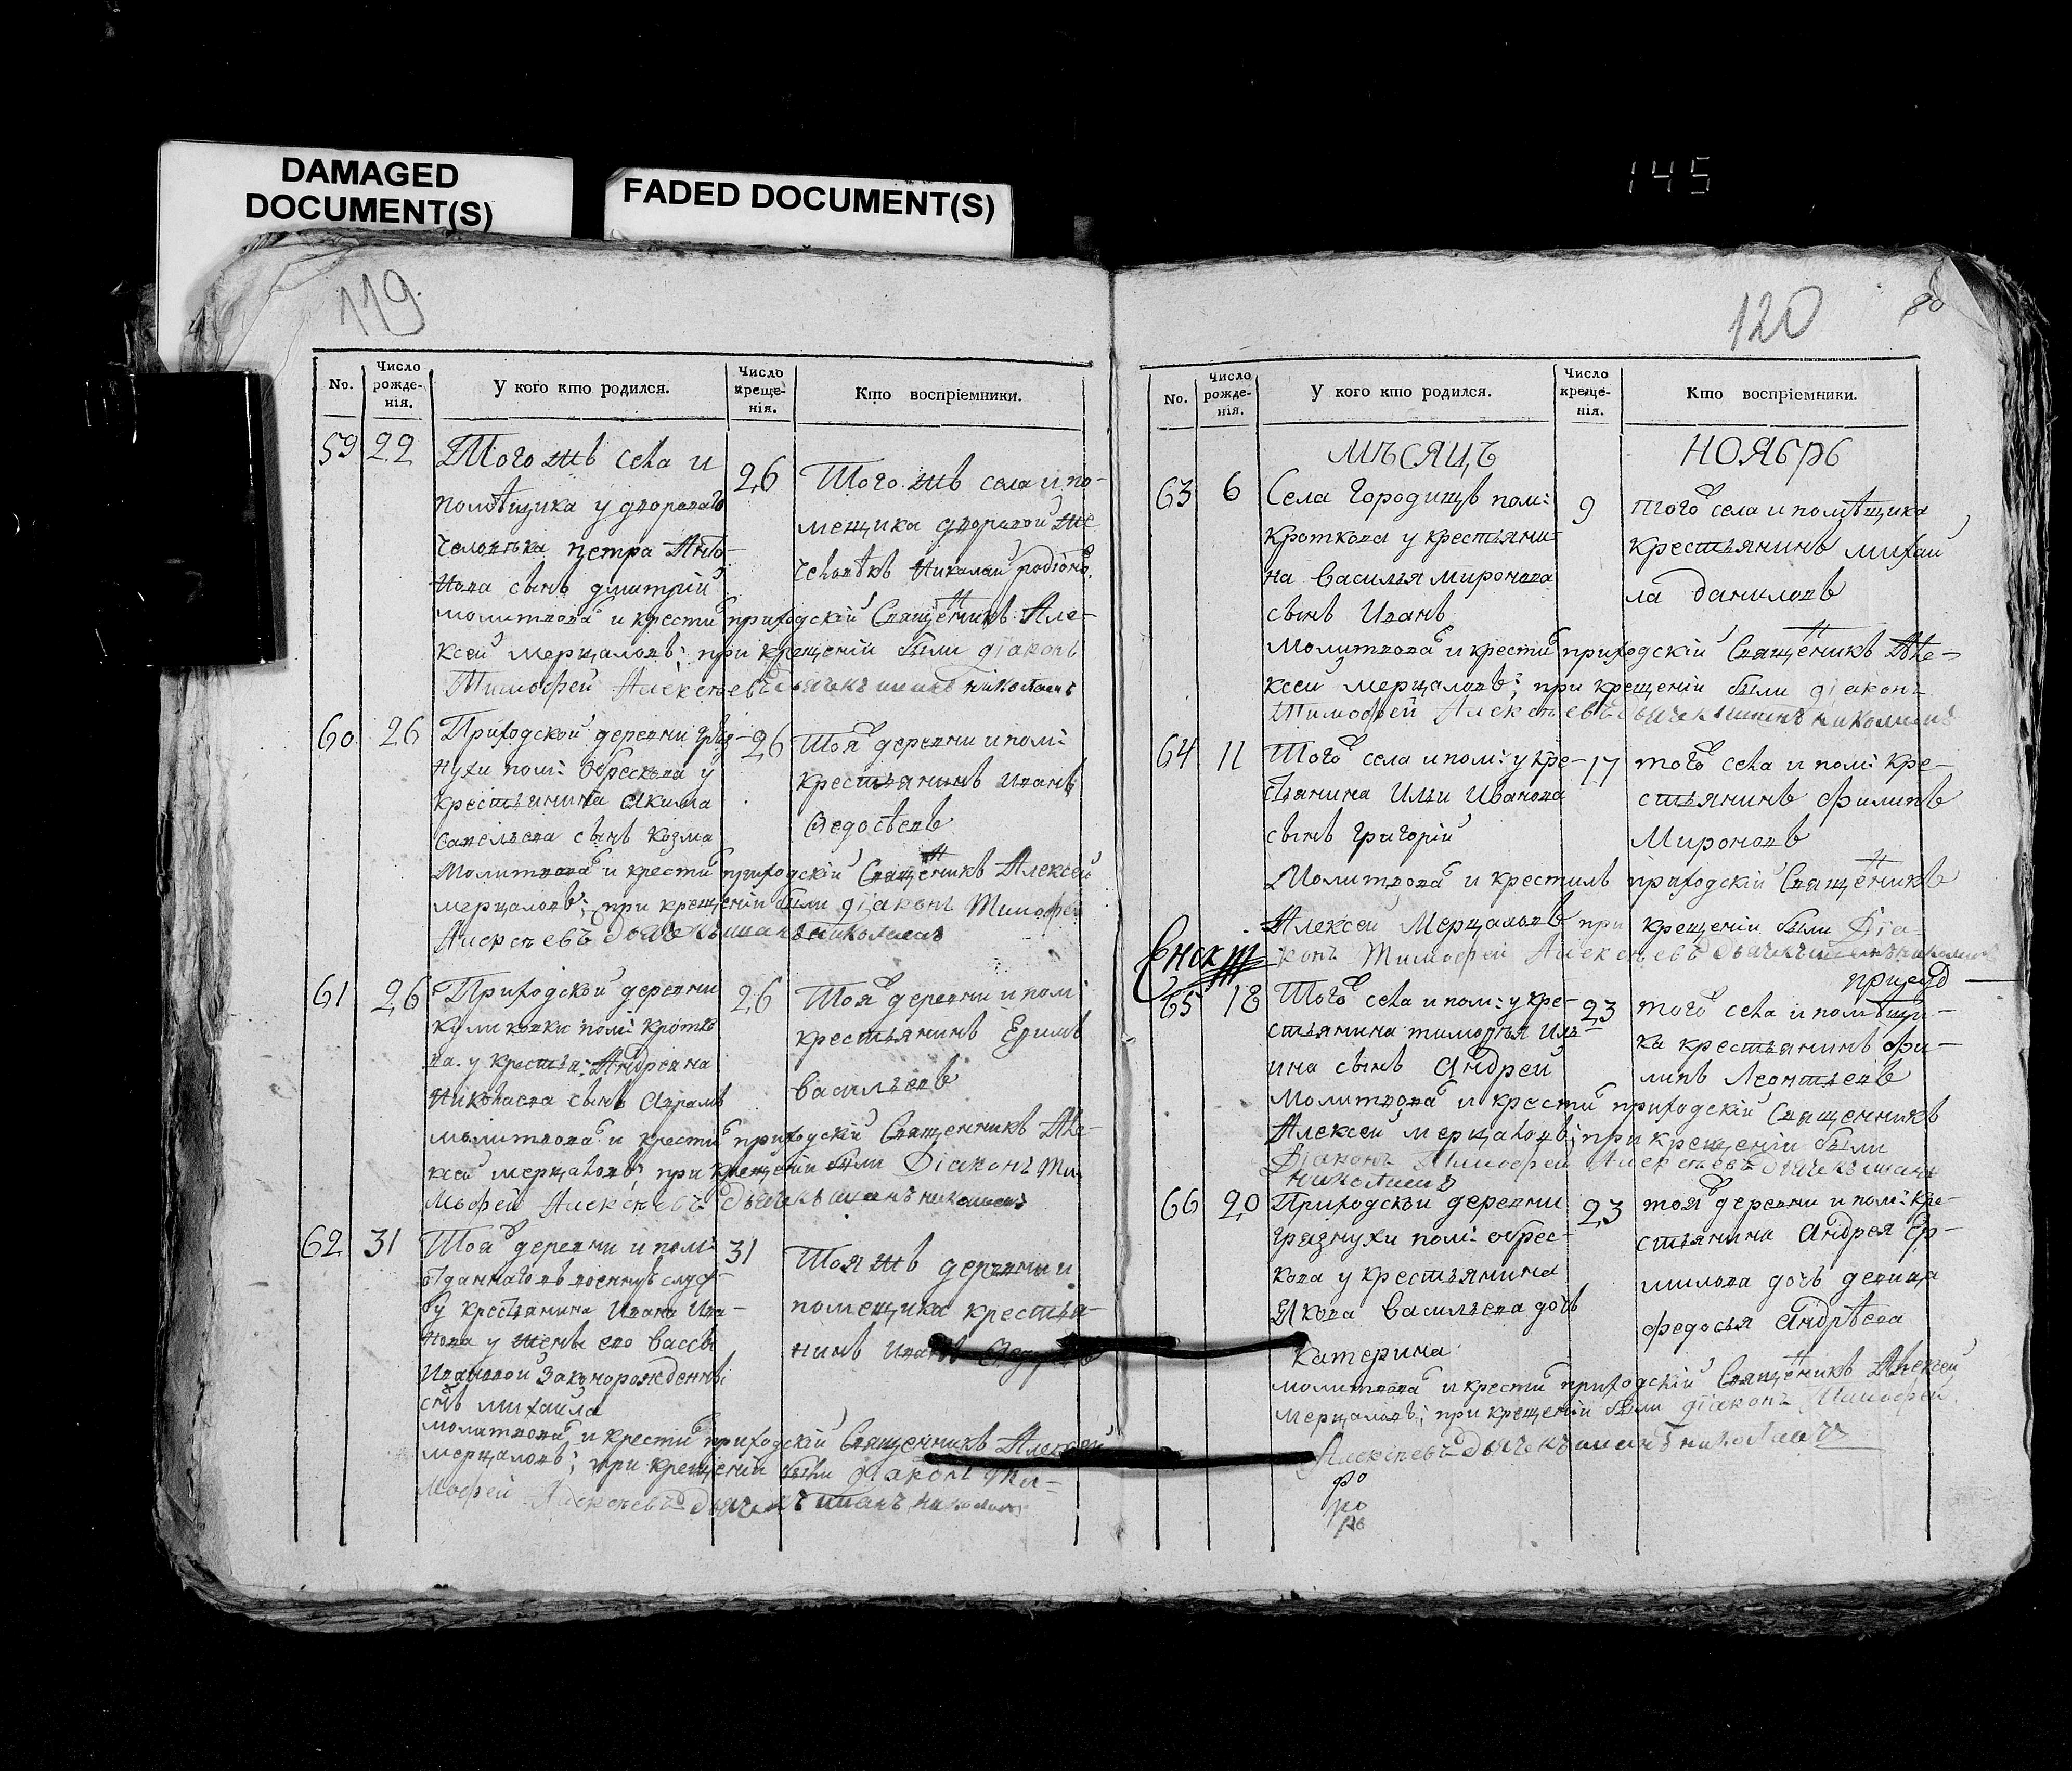 DAMAGED
DOCUMENT(S)
FADED DOCUMENT(S)
145
119
No.
Число рожде-нія.
У кого кто родился.
Число креще-нія.
Кто воспріемники.
59 22
Того жъ села и
помѣщика у двороваго
человѣка петра Анто-
нова сынъ дмитрій
26
Того жъ села и по-
мещика дворовой же
человѣкъ Николай родіоно
молитвова и крести приходскій Священикъ Але-
ксей мерцаловъ; при крещеніи были діаконъ
Тимофей Алексѣевъ дьячекъ иванъ николаевъ
60 26
Приходской деревни гряз-
нухи пом: Обрескова у
крестьянина акима
савельева сынъ козма
26
Тоя деревни и пом:
крестьянинъ иванъ
Ѳедосѣевъ
молитвова и крести приходскій Священикъ Алексей
мерцаловъ; при крещеніи были діаконъ Тимофей
Алексѣевъ дьячекъ иванъ николаевъ
61 26
Приходской деревни
куликовки пом: кротко
ва. у крестья: Андреяна
Николаева сынъ Аврамъ
26
Тоя деревни и пом:
крестьянинъ Ефимъ
васильевъ
молитвова и крести приходскій Священникъ Але-
ксей мерцаловъ; при крещеніи были Діаконъ Ти-
мофей Алексѣевъ дьячекъ иванъ николаевъ
62 31
Тоя деревни и пом:
отданнаго въ военную служ-
бу крестьянина Ивана Ива-
нова у жены его вассы
Ивановой законорожденны
снъ михаила
31
Тоя жъ деревни и
помещика крестья-
нинъ иванъ
молитвова и крести приходскій Священникъ Алексей
мерцаловъ; при крещеніи были діаконъ Ти-
мофей Алексѣевъ дьячекъ иванъ николаевъ
120
80
No.
Число рожде-нія.
У кого кто родился.
Число креще-нія.
Кто воспріемники.
МѢСЯЦЪ НОЯБРЬ
63 6
Села городищъ пом:
кроткова у крестьяни-
на василья миронова
сынъ Иванъ
9
того села и помѣщика
крестьянинъ михаи
ла даниловъ
молитвова и крести приходскій Священикъ Але-
ксей мерцаловъ; при крещеніи были діаконъ
Тимофей Алексѣевъ дьячекъ иванъ николаевъ
64 11
Того села и пом: у кре-
стьянина Ильи Иванова
сынъ григорій
17
того села и пом: кре-
стьянинъ филипъ
Мироновъ
Молитвова и крестилъ приходскій Священикъ
Алексей Мерцаловъ при крещеніи были Діа-
конъ Тимофей Алексѣевъ дьячекъ иванъ николаевъ
65 18
Того села и пом: у кре-
стьянина тимофѣя Иль-
ина сынъ Андрей
23
того села и помѣщи-
ка крестьянинъ фи-
липъ Леонтьевъ
молитвова и крести приходскій Священникъ
Алексей мерцаловъ; при крещеніи были
Діаконъ Тимофей Алексѣевъ дьячекъ иванъ
николаевъ
66 20
Приходской деревни
грязнухи пом: обрес-
кова у крестьянина
Якова васильева дочь
Катерина
23
тоя деревни и пом: кре-
стьянина Андрея Ер-
милова дочь девица
федосья Андрѣева
молитвова и крести приходскій Священикъ Алексей
мерцаловъ; при крещеніи были діаконъ Тимофей
Алексѣевъ дьячекъ иванъ николаевъ